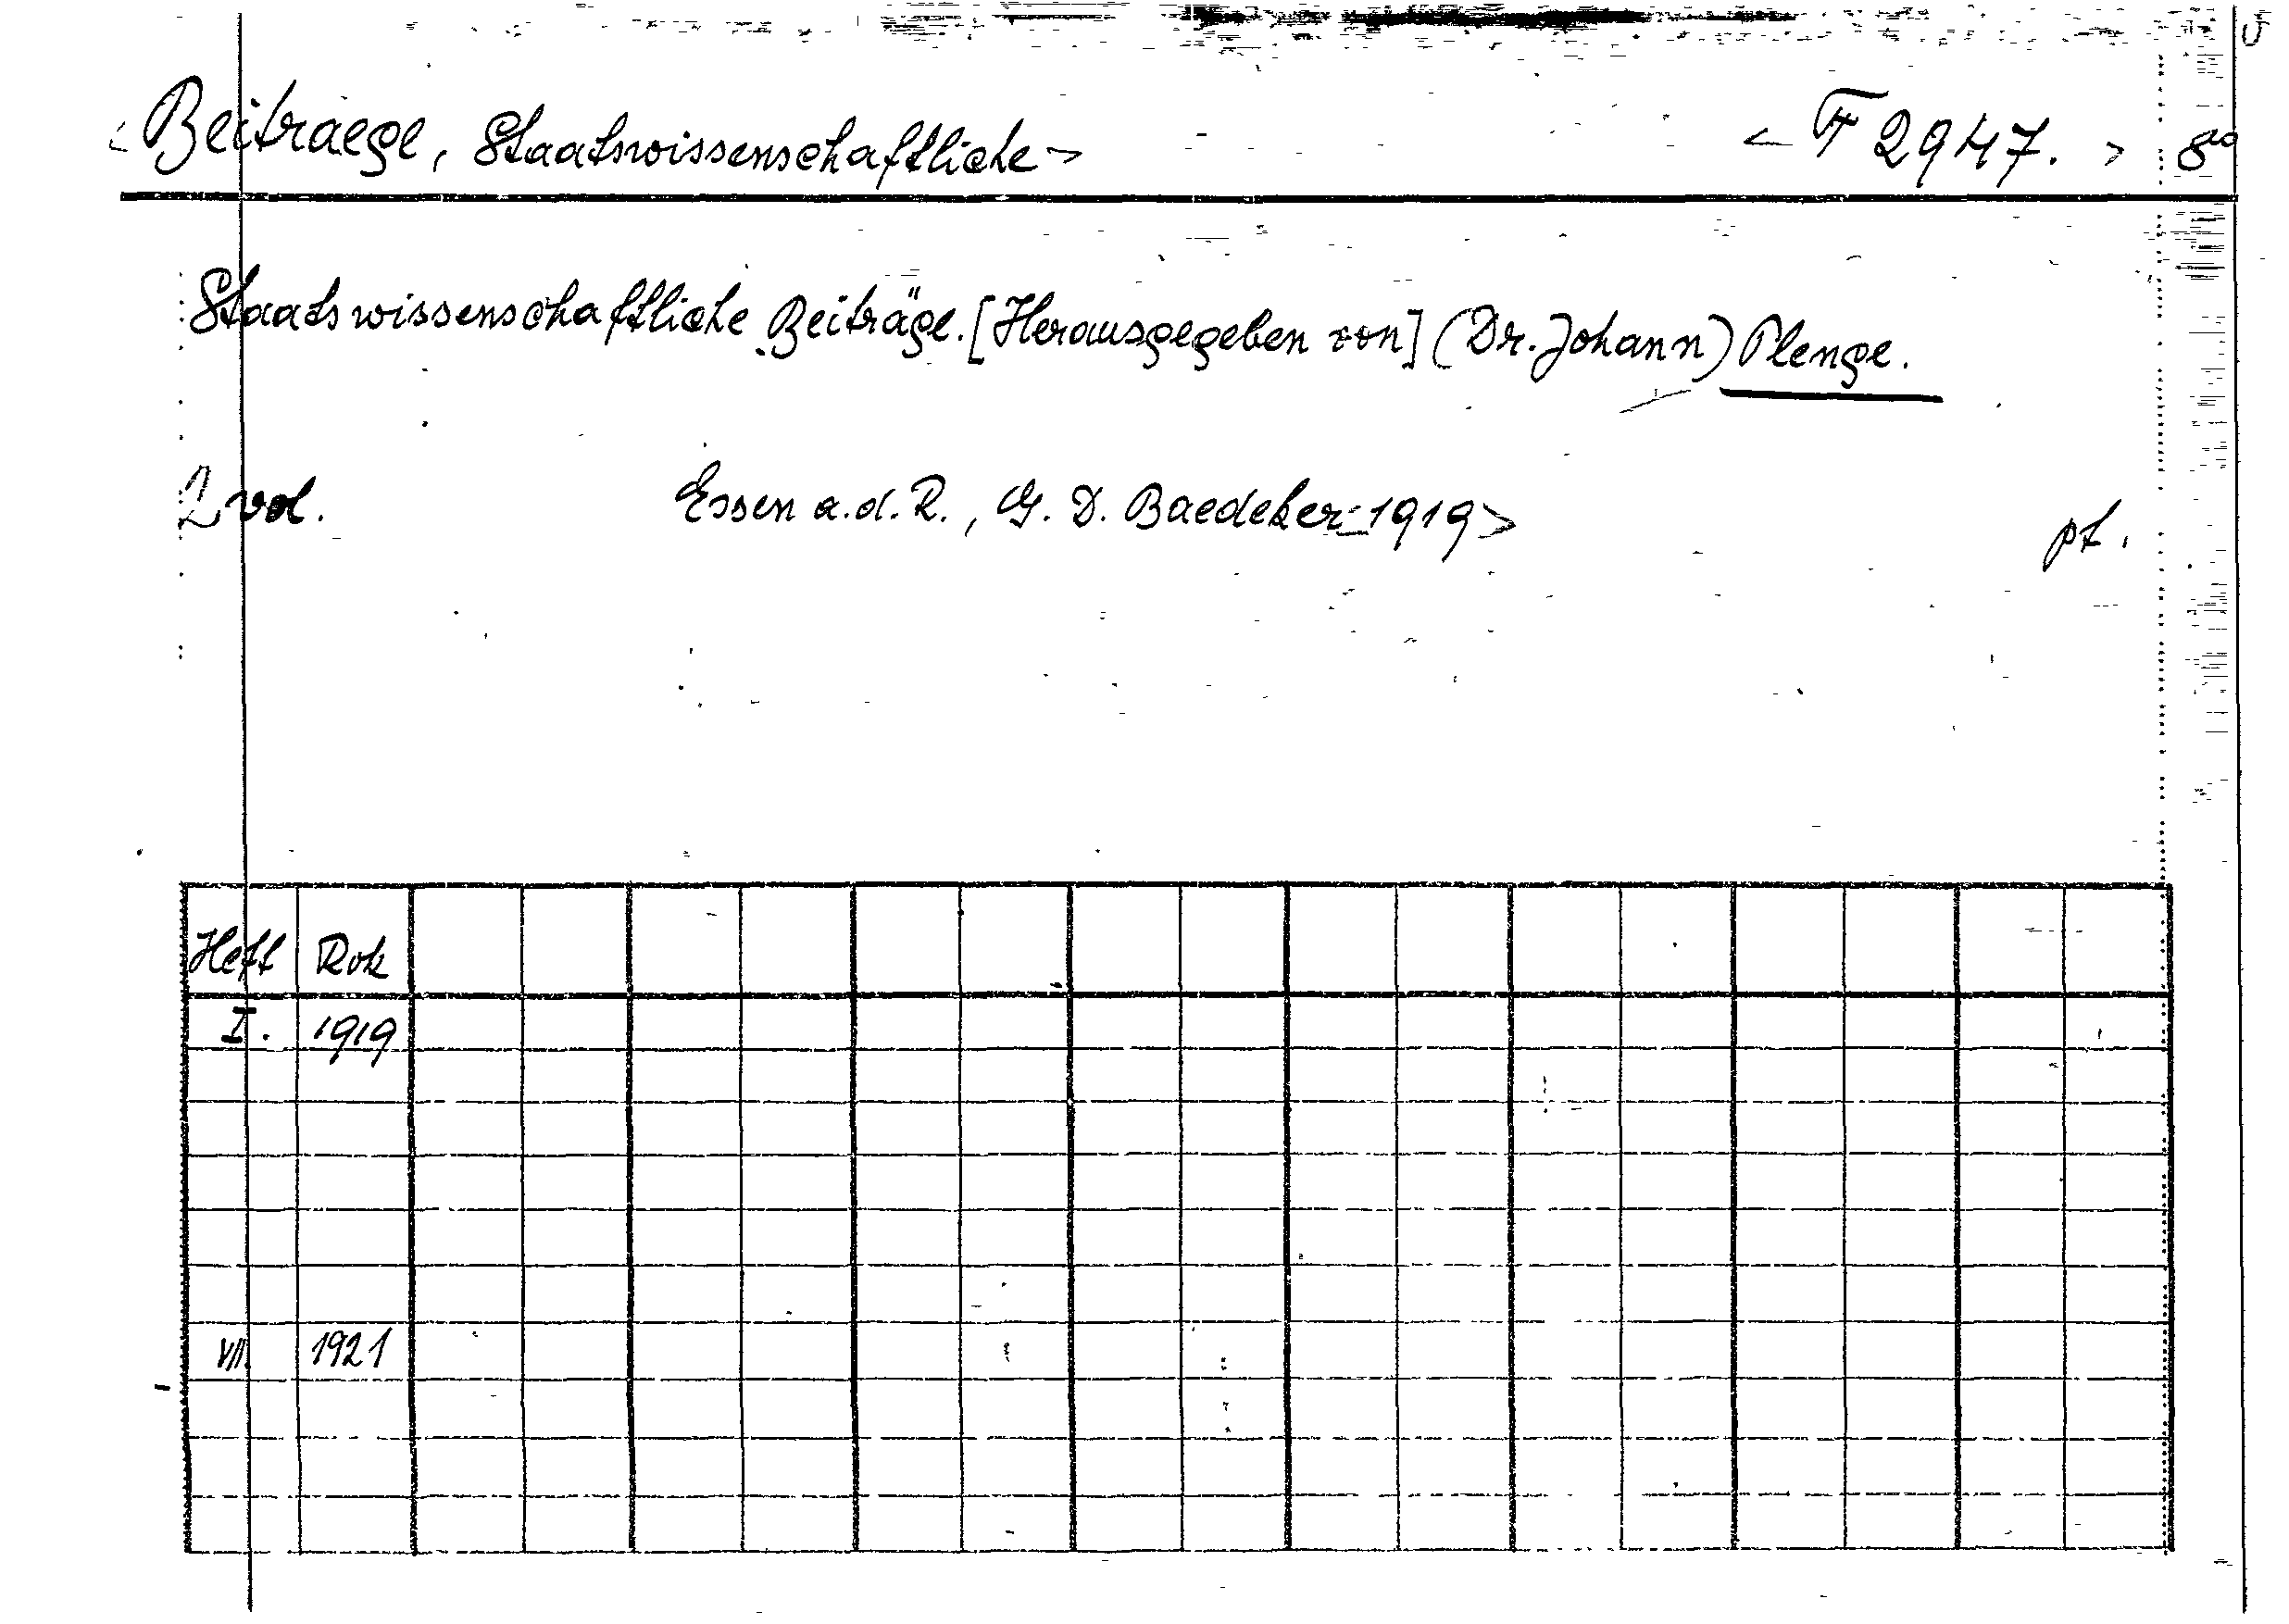 <Beitraege, Staatswissenschaftliche> <F 2947.> 8°
Staatswissenschaftliche Beiträge. [Herausgegeben von] (Dr. Johann) Plenge.
2 vol. Essen a. d. R., G. D. Baedeker <1919> pt.
Heft Rok
I. 1919
VII. 1921